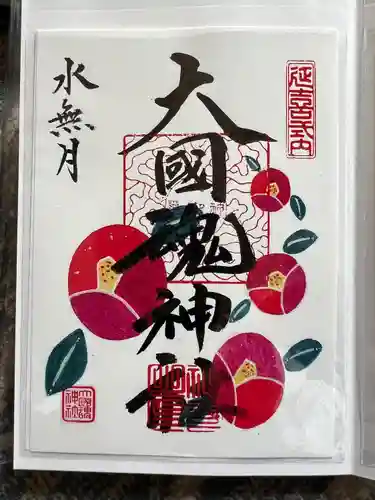 延喜式内
大國魂神社
水無月